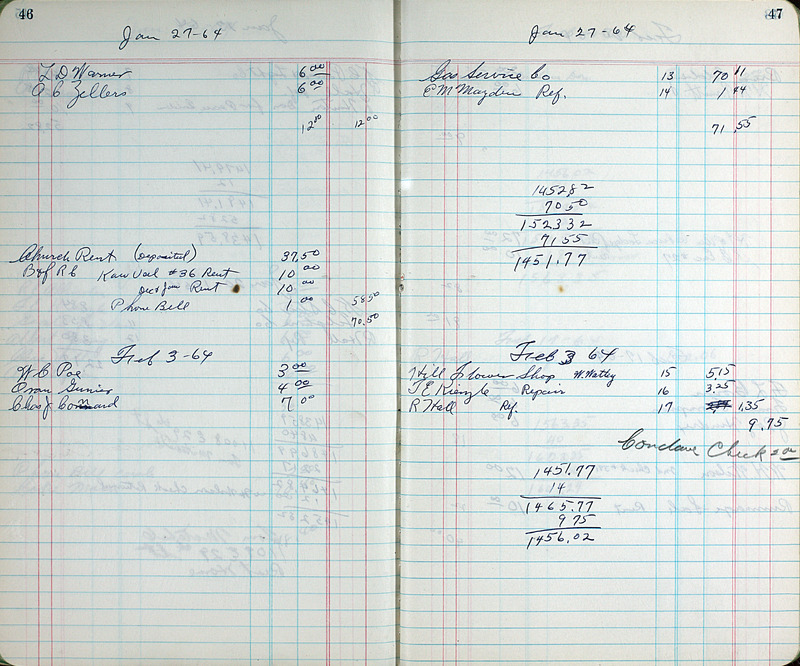 46
Jan 27-64
L D Warner 6 00
A C Zellers 6 00
12 00 12 00
Church Rent (deposited) 37.50
B of R C Kaw Val #36 Rent 10 00
Dec & Jan Rent 10 00
Phone Bell 1 00 58 50
70.50
Feb 3-64
W C Poe 3 00
Oran 4 00
Chas J 7 00
47
Jan 27-64
Gas Service Co 13 70 11
C M Mayden Ref. 14 1 44
71 55
145282
70 50
152332
71 55
1451.77
Feb 3 64
Hill Flower Shop W. 15 5 15
J E Kienzle Repair 16 3.25
R Hall Ref. 17 1.35
9.75
Conclave Check
1451.77
14
1465.77
9 75
1456.02